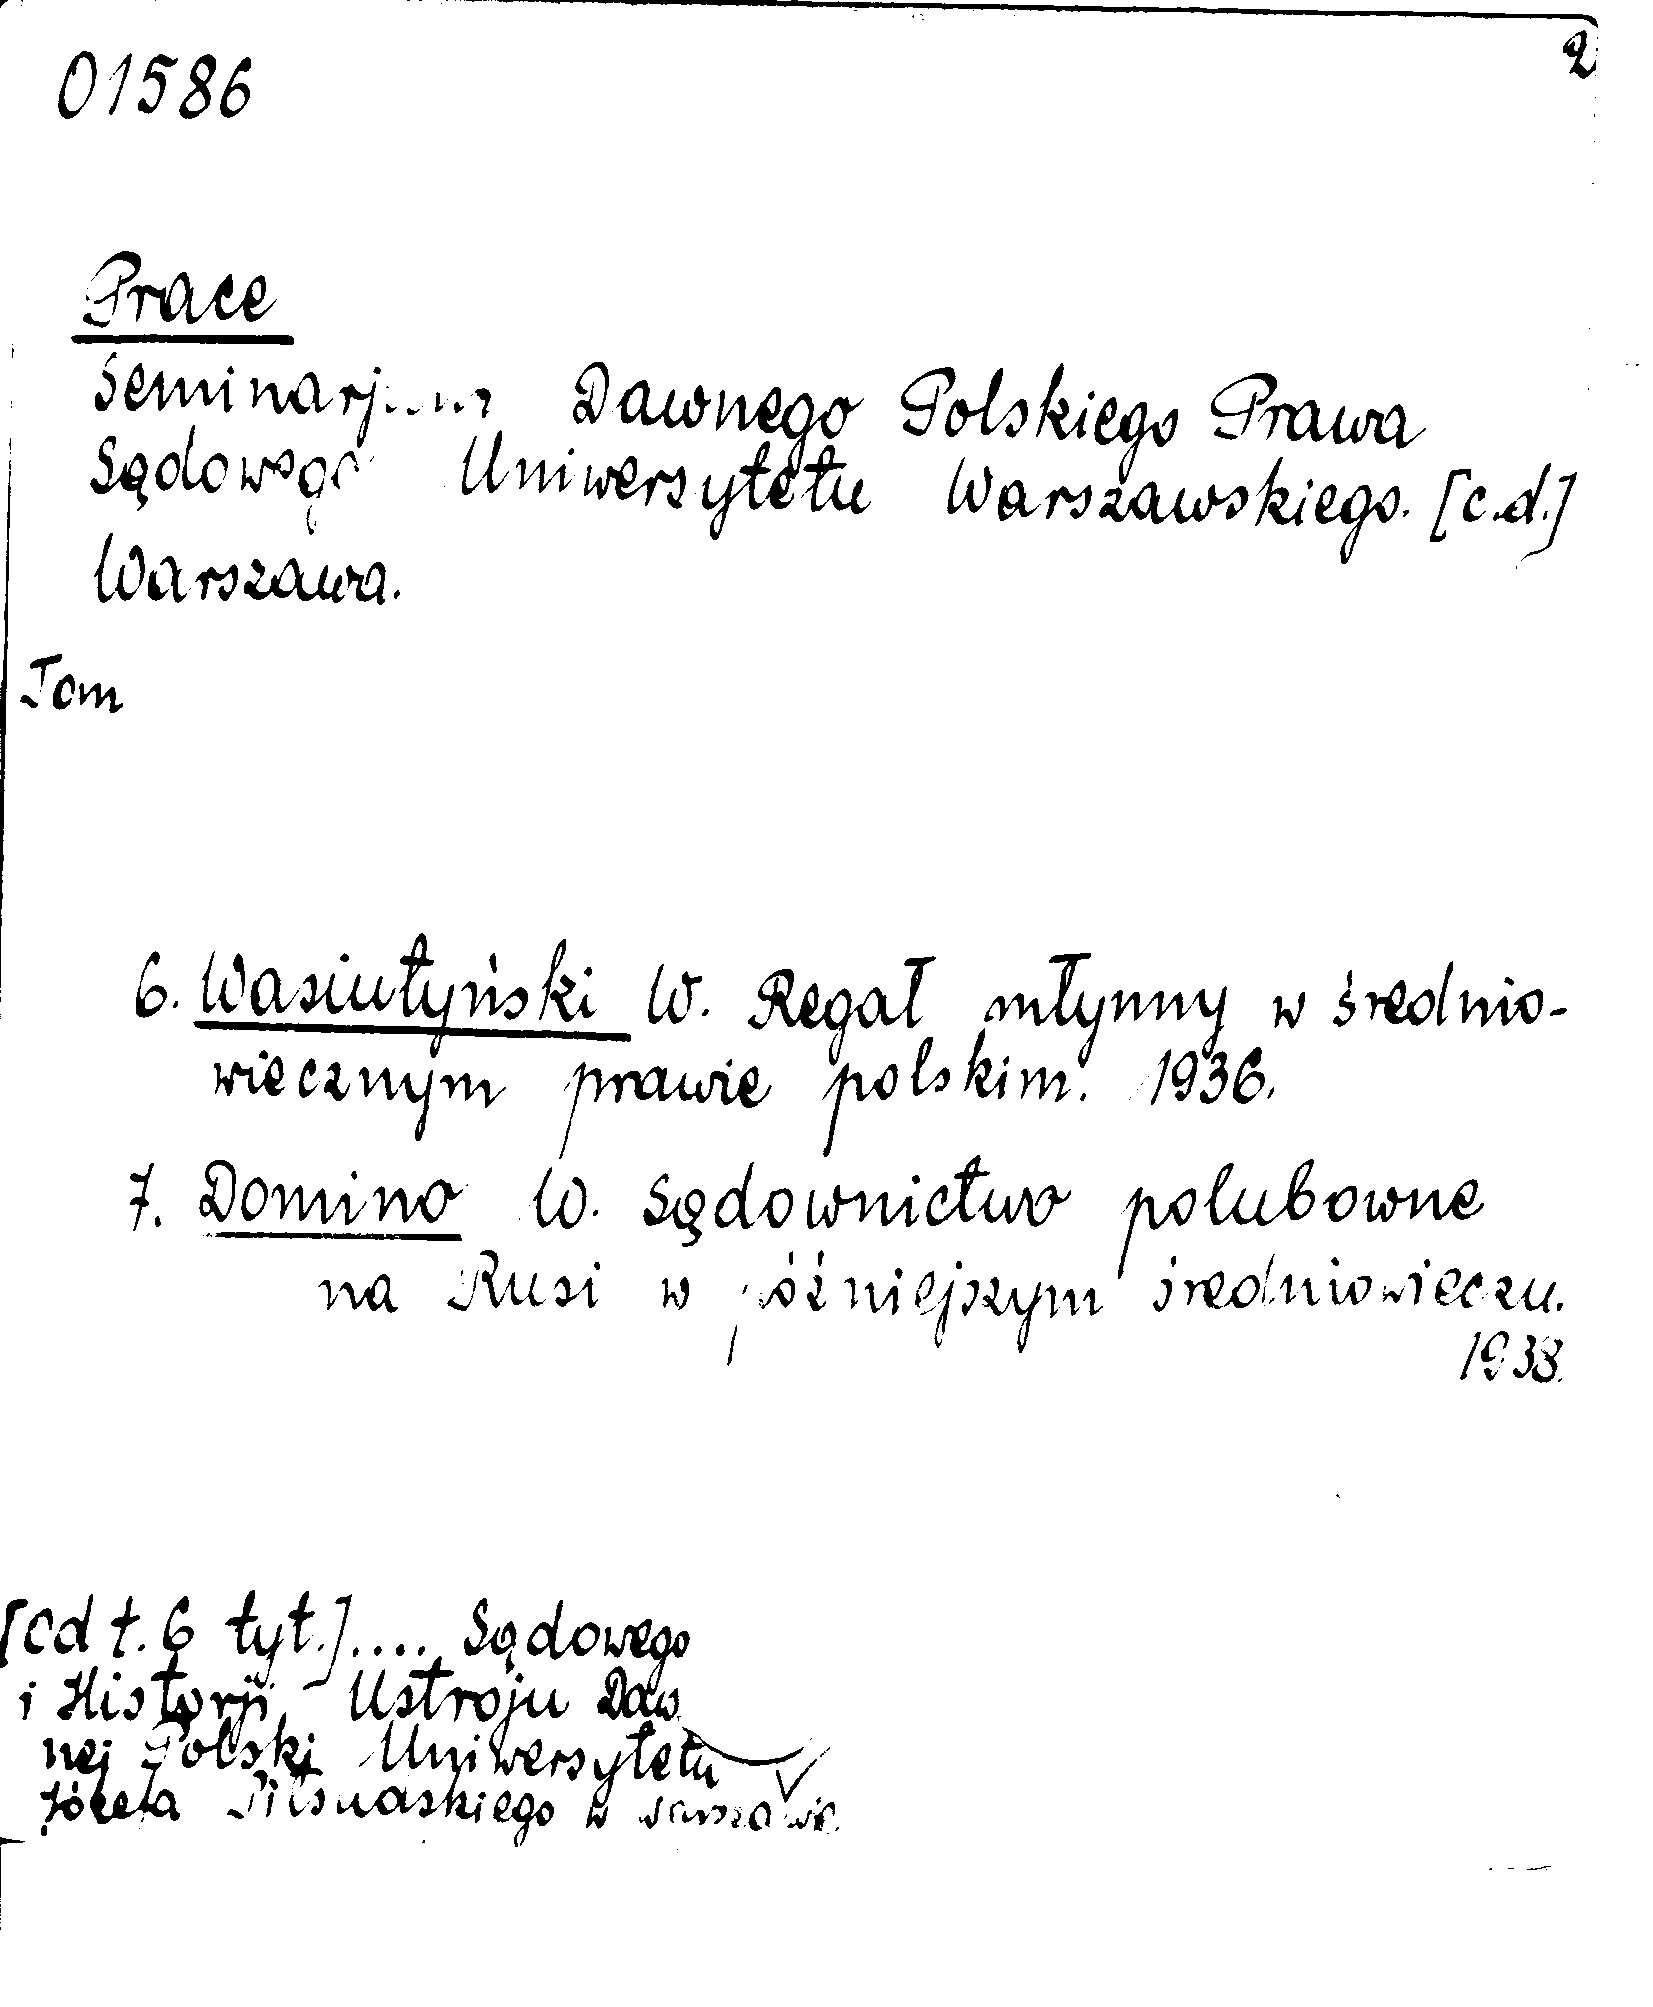 01586
2
Prace
Seminarjum Dawnego Polskiego Prawa
Sądowego Uniwersytetu Warszawskiego. [c.d.]
Warszawa.
Tom
6. Wasiutyński W. Regał młynny w średnio-
wiecznym prawie polskim. 1936.
7. Domino W. Sądownictwo polubowne
na Rusi w późniejszym średniowieczu.
1938.
[cd t. 6 tyt.].... Sądowego
i Historji Ustroju Daw
nej Polski Uniwersytetu
Józefa Piłsudskiego w Warszawie.